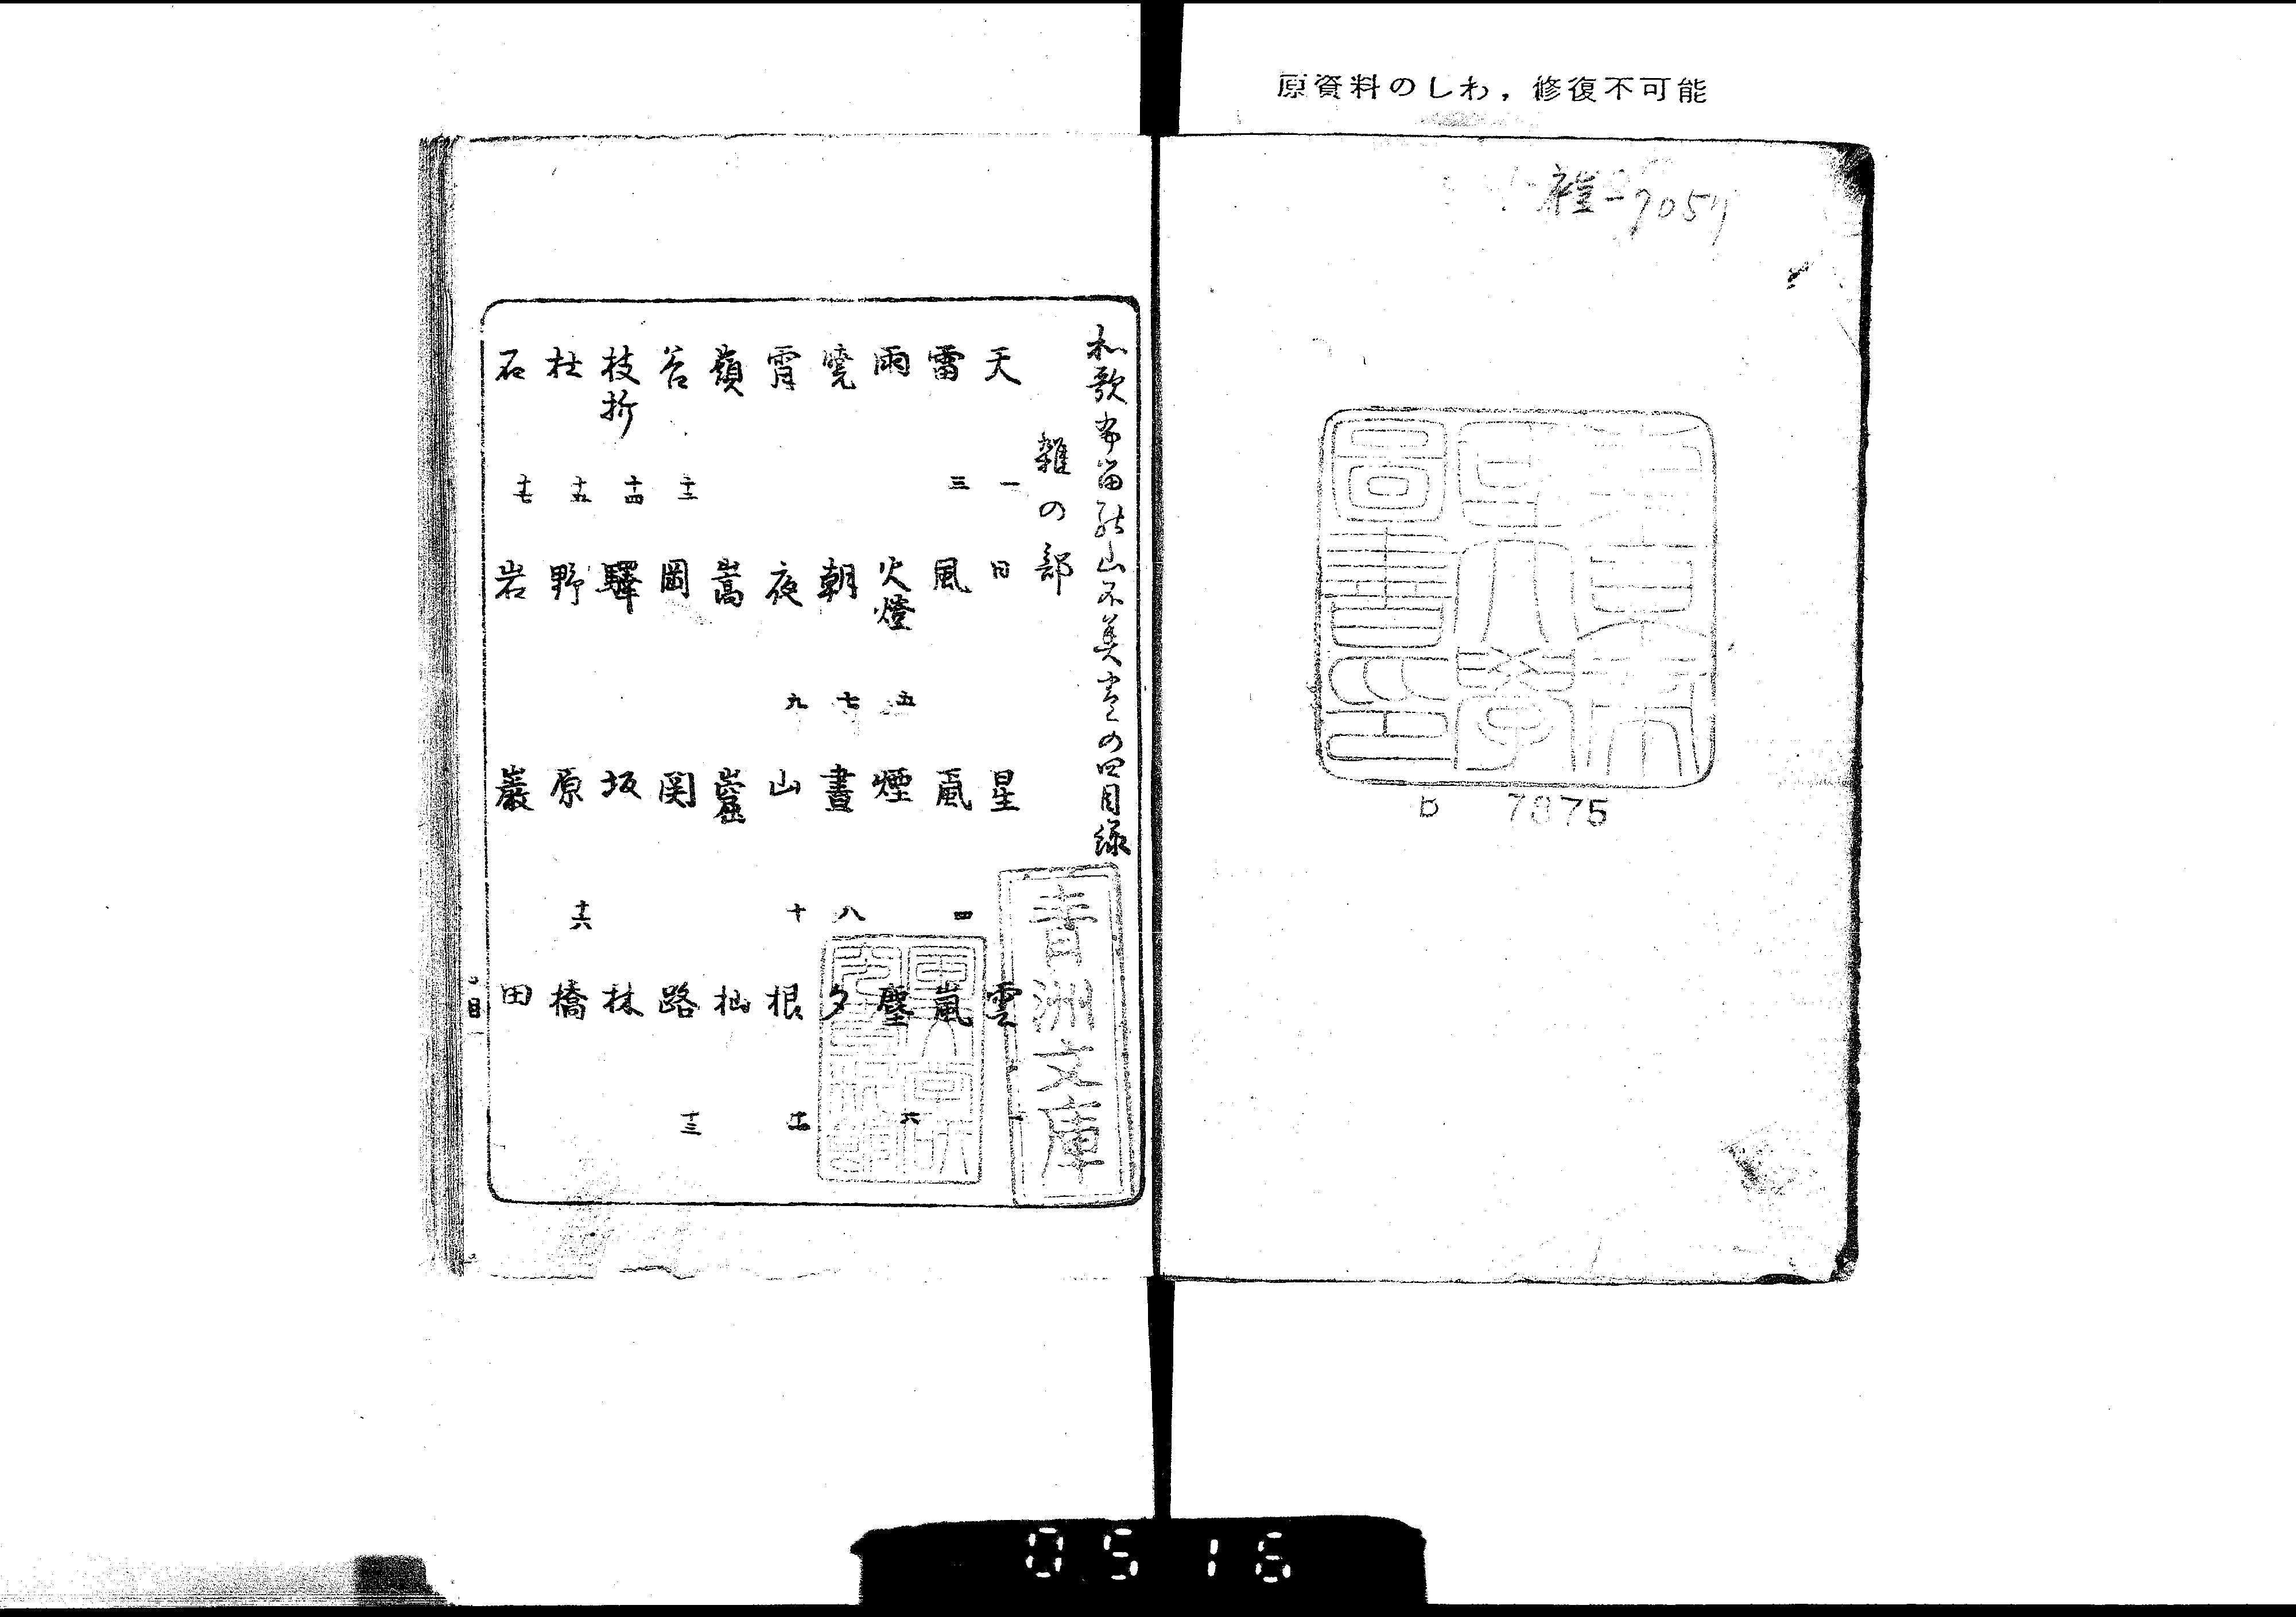 原資料のしわ，修復不可能
7075
和歌布留能山不美巻の四目録
雑の部
天 一 日 星 雲
雷 三 風 凬 四 嵐
雨 火燈 五 煙 塵 六
暁 朝 七 晝 八 夕
霄 夜 九 山 十 根
嶺 嵩 杣
谷 十二 岡 関 路 十三
枝折 十四 驛 坂 林
杜 十五 野 原 十六 橋
石 十七 岩 巌 田
目
青洲文庫
0516